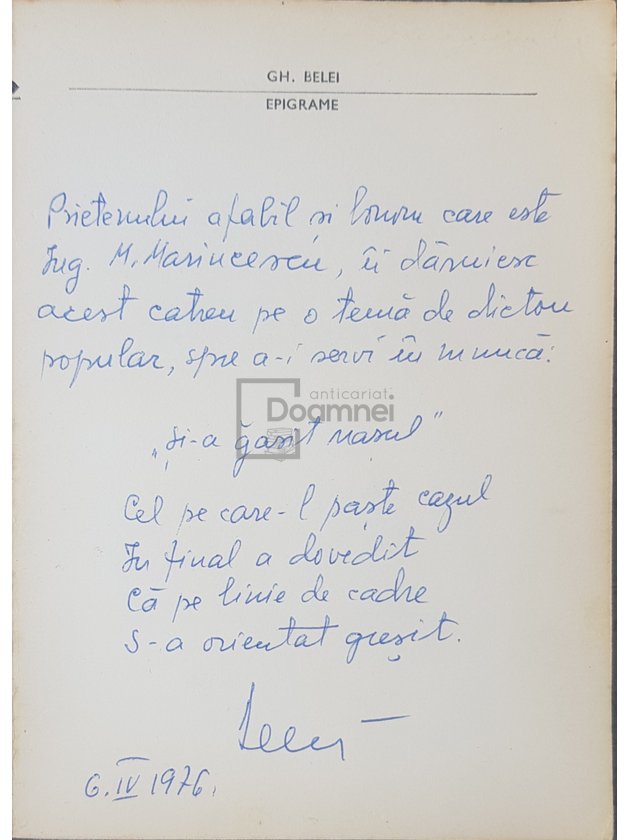 GH. BELEI
EPIGRAME
Prietenului afabil si bonom care este
Ing. M. Marincescu, îi dăruiesc
acest catren pe o temă de dicton
popular, spre a-i servi în muncă:
anticariat
Doamnei
"Și-a găsit nașul"
Cel pe care-l paște cazul
In final a dovedit
Că pe linie de cadre
S-a orientat greșit.
Belei
6.IV 1976.